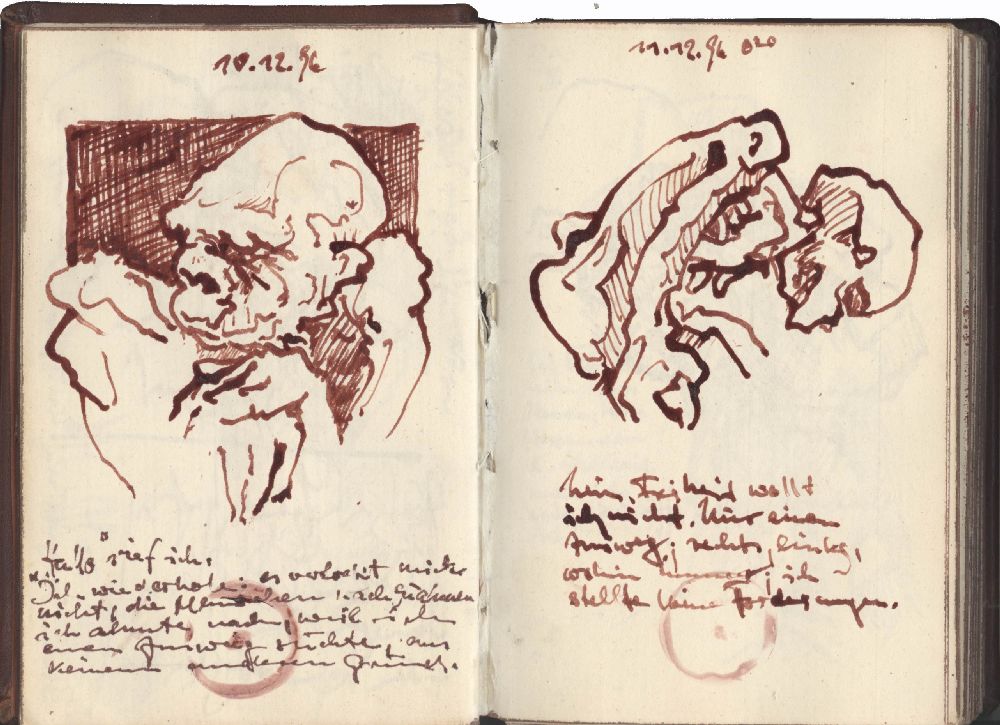 10.12.94
"Hallo" rief ich.
"Ich wiederhole: es verlockt mich
nicht, die Menschen nachzuahmen
ich ahmte nach, weil ich
einen Ausweg suchte, aus
keinem anderen Grund.
11.12.94 020
Nein, Freiheit wollt
ich nicht. Nur einen
Ausweg; rechts, links,
wohin immer; ich
stellte keine Forderungen.